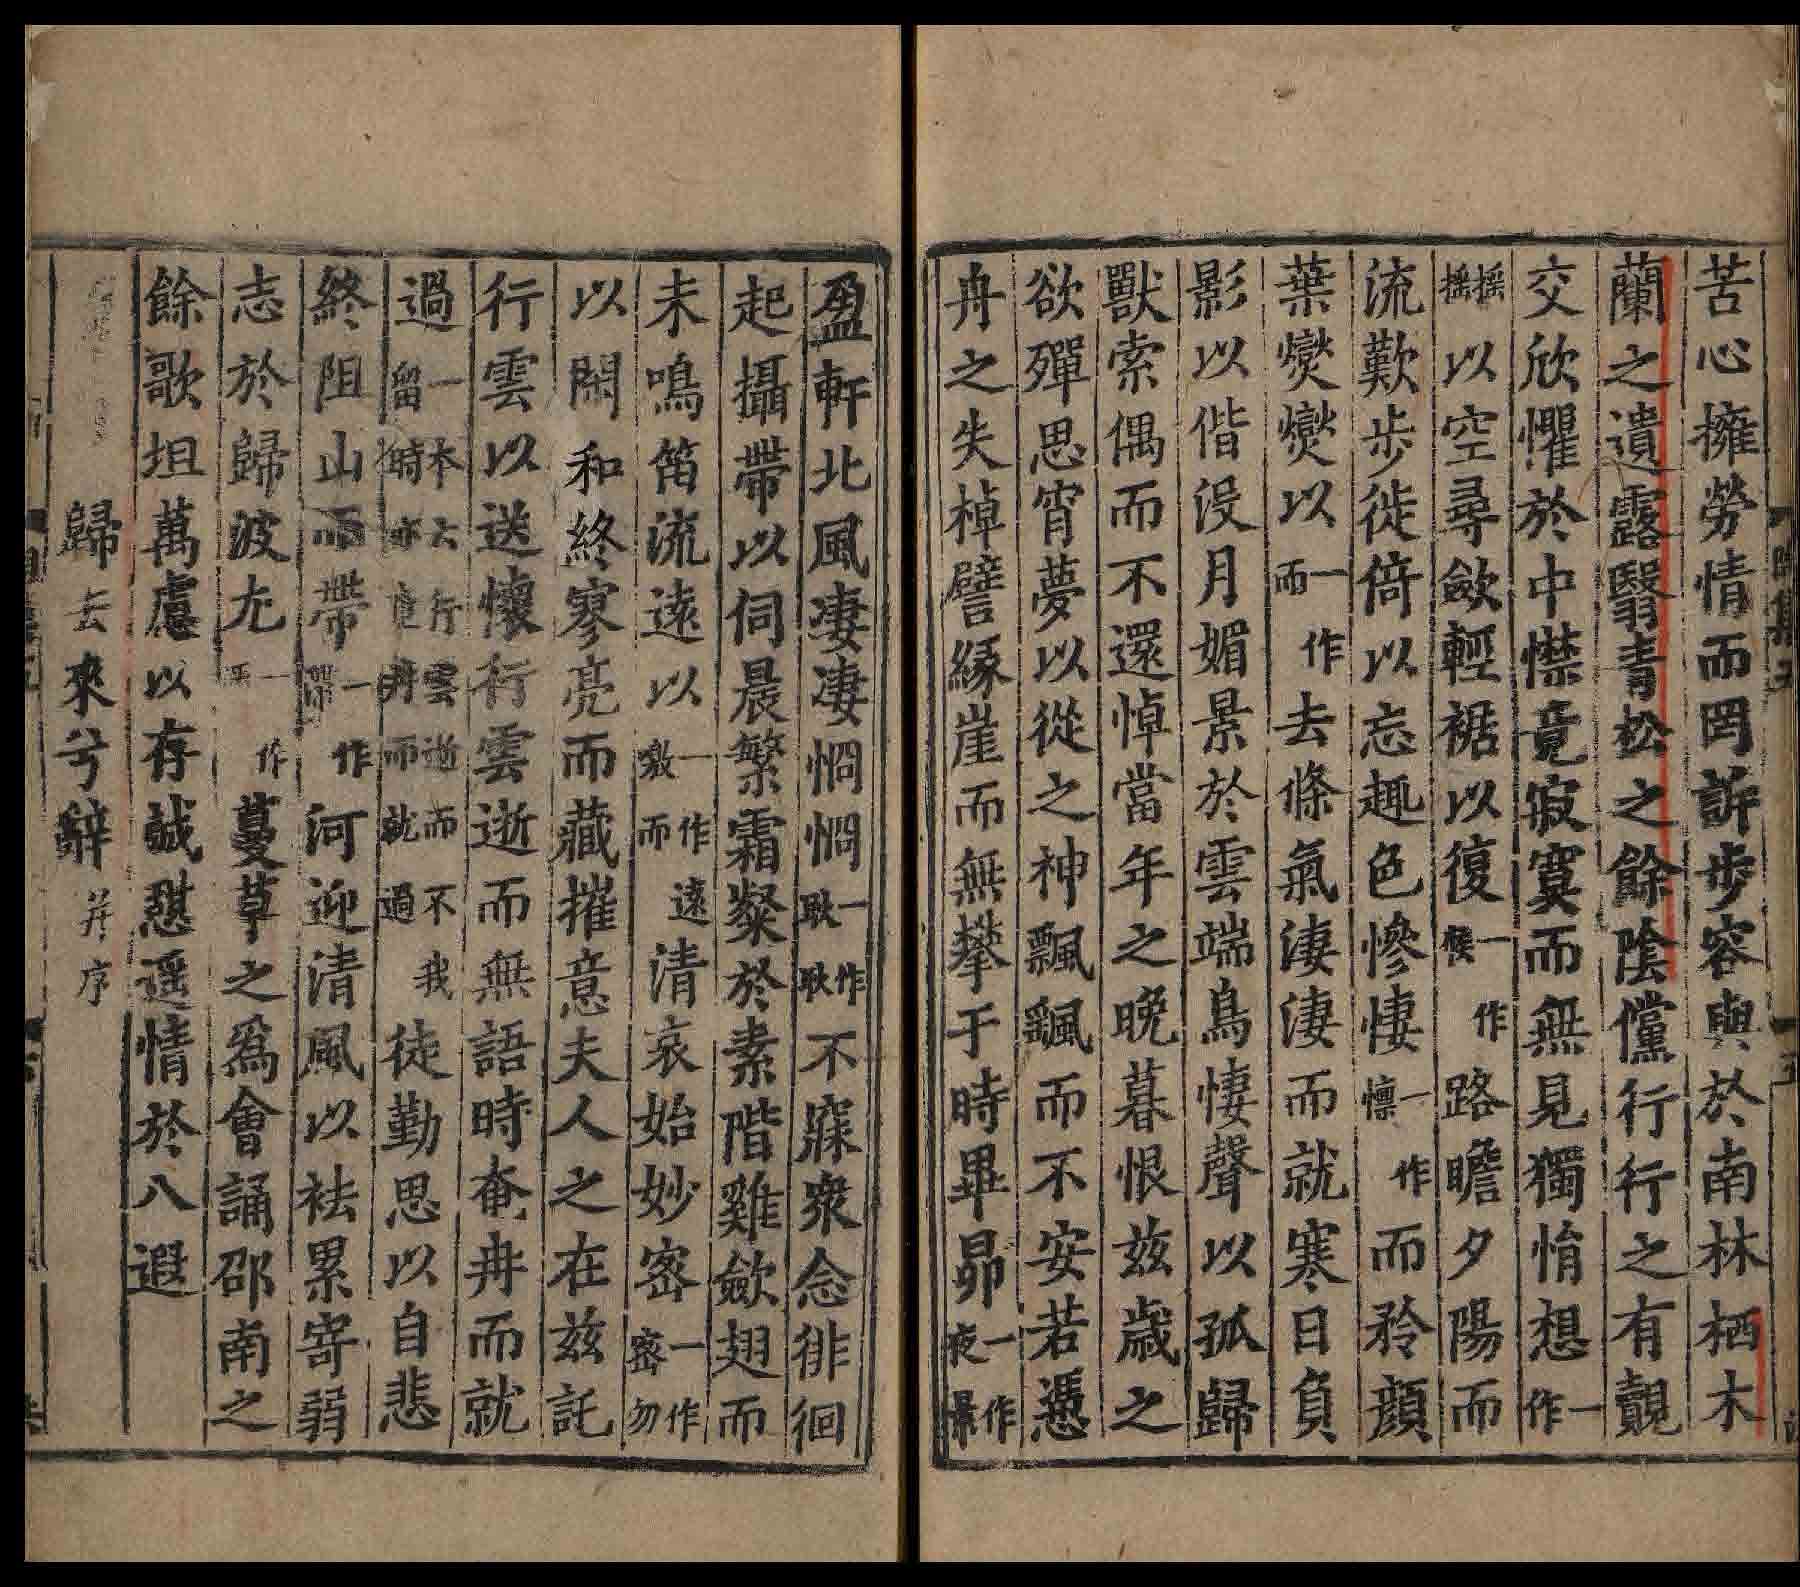 苦心擁勞情而罔訴步容與於南林栖木
蘭之遺露翳青松之餘陰儻行行之有覿
交欣懼於中襟竟寂寞而無見獨悁想一作
摇摇以空尋斂輕裾以復一作候路瞻夕陽而
流歎步徙倚以忘趣色慘悽一作懍而矜顔
葉燮燮以一作而去條氣淒淒而就寒日負
影以偕沒月媚景於雲端鳥悽聲以孤歸
獸索偶而不還悼當年之晚暮恨兹歲之
欲殫思宵夢以從之神飄颻而不安若憑
舟之失棹譬緣崖而無攀于時畢昴一作夜景
盈軒北風凄凄惘惘一作耿耿不寐衆念徘徊
起攝帶以伺晨繁霜粲於素階雞斂翅而
未鳴笛流遠以一作噭而遠清哀始妙密一作密勿
以閑和終寥亮而藏摧意夫人之在兹託
行雲以送懷行雲逝而無語時奄冉而就
過一本云行雲逝而不我留時亦奄冉而就過徒勤思以自悲
終阻山而帶一作滯河迎清風以袪累寄弱
志於歸波尤一作蔓草之爲會誦邵南之
餘歌坦萬慮以存誠憇遥情於八遐
歸去來兮辭并序